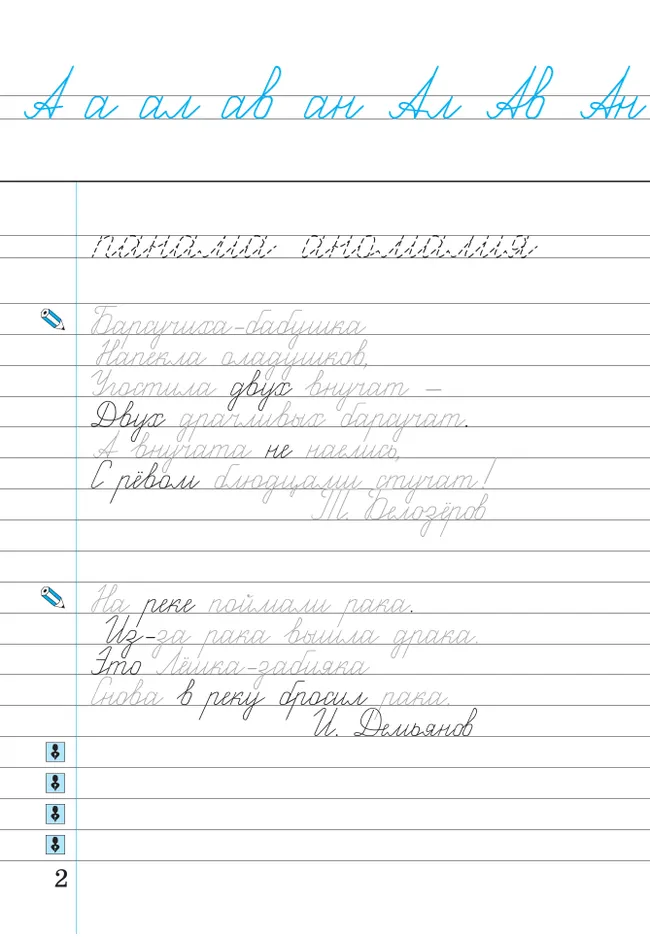 А а ал ав ан Ал Ав Ан
панама аномалия
Барсучиха-бабушка
Напекла оладушков,
Угостила двух внучат –
Двух драчливых барсучат.
А внучата не наелись,
С рёвом блюдцами стучат!
Т. Белозёров
На реке поймали рака.
Из-за рака вышла драка.
Это Лёшка-забияка
Снова в реку бросил рака.
И. Демьянов
2